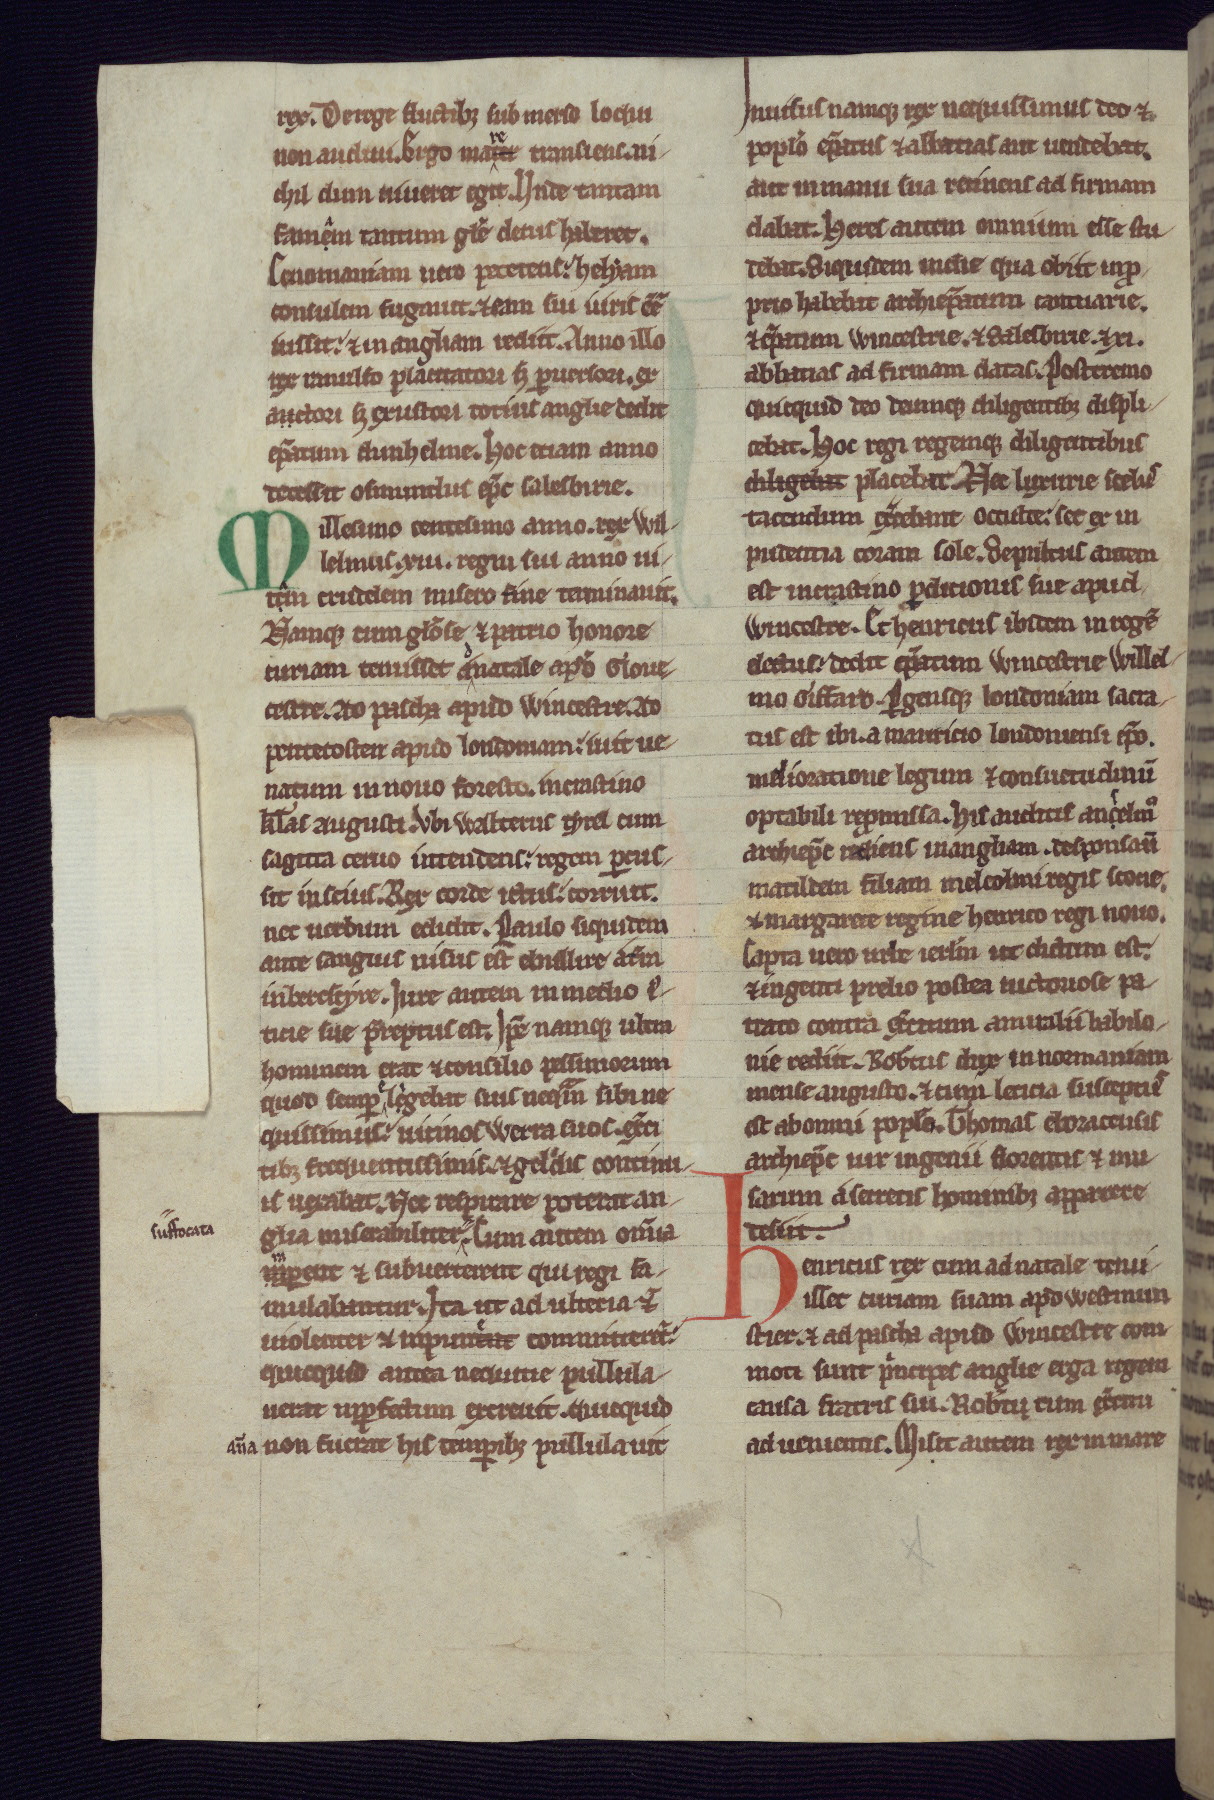 rex. De rege fluctibꝫ submerso loqui
non audiui. Ergo mare transiens. ni-
chil dum uiueret egit. Unde tantam
famẽm tantum gl̃e decus haberet.
Cenomaniam uero petens: helyam
consulem fugauit. & eam sui iuris ee
iussit: & in angliam rediit. Anno illo
rex ranulfo placitatori sꝫ ꝑuersori. ex
actori sꝫ exustori totius anglie dedit
ep̃atum dunhelme. Hoc etiam anno
decessit osmundus ep̃c salesburie.
Millesimo centesimo anno. rex Wil-
lelmus. xiii. regni sui anno ui-
tam crudelem misero fine terminauit.
Namqꝫ cum glõse & patrio honore
curiam tenuisset ad natale apđ Gloue-
cestre. Ad pascha apud Wincestre. Ad
pentecosten apud londoniam: iuit ue-
natum in nouo foresto. in crastino
kl̃as augusti. Vbi Walterus tyrel cum
sagitta ceruo intendens: regem ꝑcus-
sit inscius. Rex corde ictus: corruit.
nec uerbum edidit. Paulo siquidem
ante sanguis uisus est ebullire a tr̃a
in bercscyre. Jure autem in medio i-
ticie sue p̃reptus est. Ip̃e namqꝫ ultra
hominem erat & consilio pessimorum
quod semꝑ elegebat suis neqm̃ sibi ne
quissimus: uicinos Werra suos. exci
tibꝫ frequentissimis. & geldis continu-
is uexabat. Nec respirare poterat an-
glia miserabiliter. Cum autem om̃ia
suffocata
raperent & subuerterent qui regi fa-
mulabantur. Ita ut adulteria &
uiolenter & inpune committerent:
quicquid antea nequitie pullula-
uerat in ꝑfectum excreuit. Quicquid
an̄a non fuerat his temꝑibꝫ pullulauit
Inuisus namqꝫ rex nequissimus deo &
poplo ep̃atus & abbatias aut uendebat.
aut in manu sua retinens ad firmam
dabat. Heres autem omnium esse stu-
debat. Siquidem in die qua obiit in ꝓ-
prio habebat archiep̃atum cantuarie.
& ep̃atum Wincestrie. & Salesburie. & xi.
abbatias ad firmam datas. Postremo
quicquid deo deumqꝫ diligentibꝫ displi-
cebat. Hoc regi regemqꝫ diligentibus
diligebat placebat. Nec luxurie scelus
tacendum exercebant occulte: set ex in
pudentia coram sole. Sepultus autem
est in crastino ꝑditionis sue apud
Wincestre. Et henricus ibidem in regẽ
electus: dedit ep̃atum Wincestrie Willel-
mo Giffard. Pergensqꝫ londoniam sacra-
tus est ibi. a mauricio londoniensi ep̃o.
melioratione legum & consuetudinũ
optabili repromissa. His auditis ancelm9
archiep̃c rediens in angliam. desponsauit
matildem filiam melcolmi regis scocie.
& margarete regine henrico regi nouo.
Capta uero urbe ierl̃m ut dictum est:
& ingenti prelio postea uictoriose pa-
trato contra exercitum amiralii babilo-
nie rediit. Rob̃tus dux in normanniam
mense augusto. & cum leticia susceptus
est ab omni poplo. Thomas eboracensis
archiep̃c uir ingenii florentis & mu-
sarum a secretis hominibꝫ apparere
desiit.
Henricus rex cum ad natale tenu-
isset curiam suam apđ westmun
stier. & ad pascha apud Wincestre com
moti sunt p̃ncipes anglie erga regem
causa fratris sui. Rob̃ti cum exercitu
aduenientis. Misit autem rex in mare